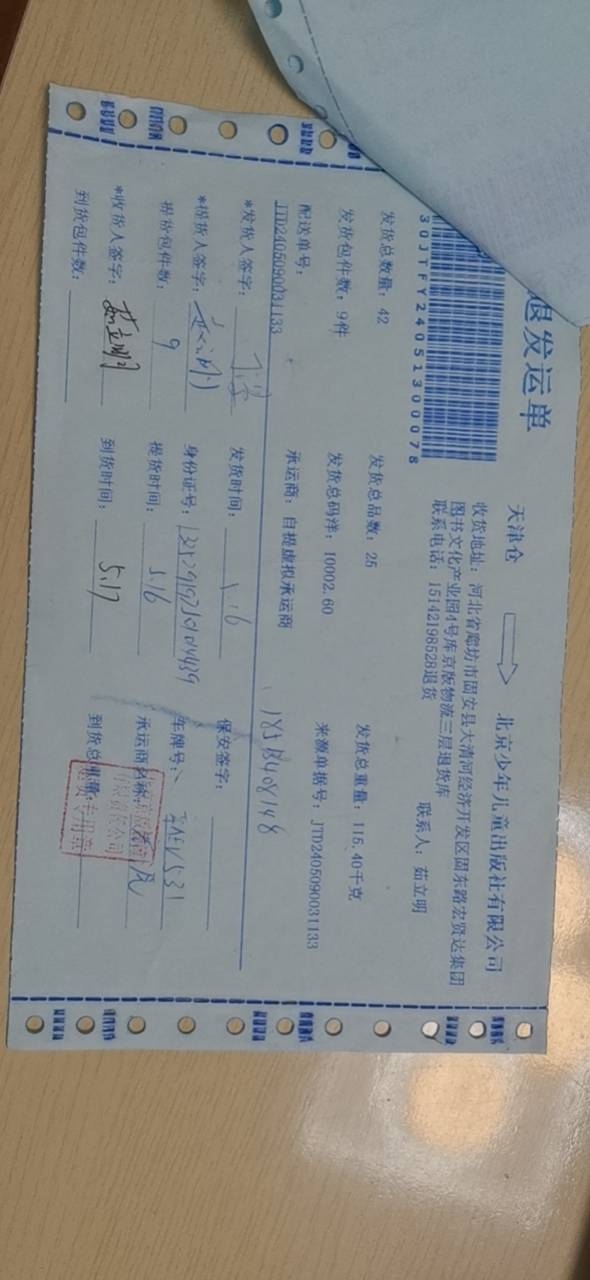 退发运单
天津仓 北京少年儿童出版社有限公司
30JTFY24051300078
收货地址：河北省廊坊市固安县大清河经济开发区固东路宏贤达集团
图书文化产业园4号库京版物流三层退货库
联系电话：15142198528退货 联系人：茹立明
发货总数量：42 发货总品数：25 发货总重量：115.40千克
发货包件数：9件 发货总码洋：10002.60 来源单据号：JTD2405090031133
配送单号： 承运商：自提虚拟承运商
JTD2405090031133
*发货人签字： 发货时间： 保安签字：
*提货人签字： 身份证号： 车牌号：
提货包件数：9 提货时间：5.16 承运商
*收货人签字：茹立明 到货时间：5.17 到货总重量：
到货包件数：
专用章